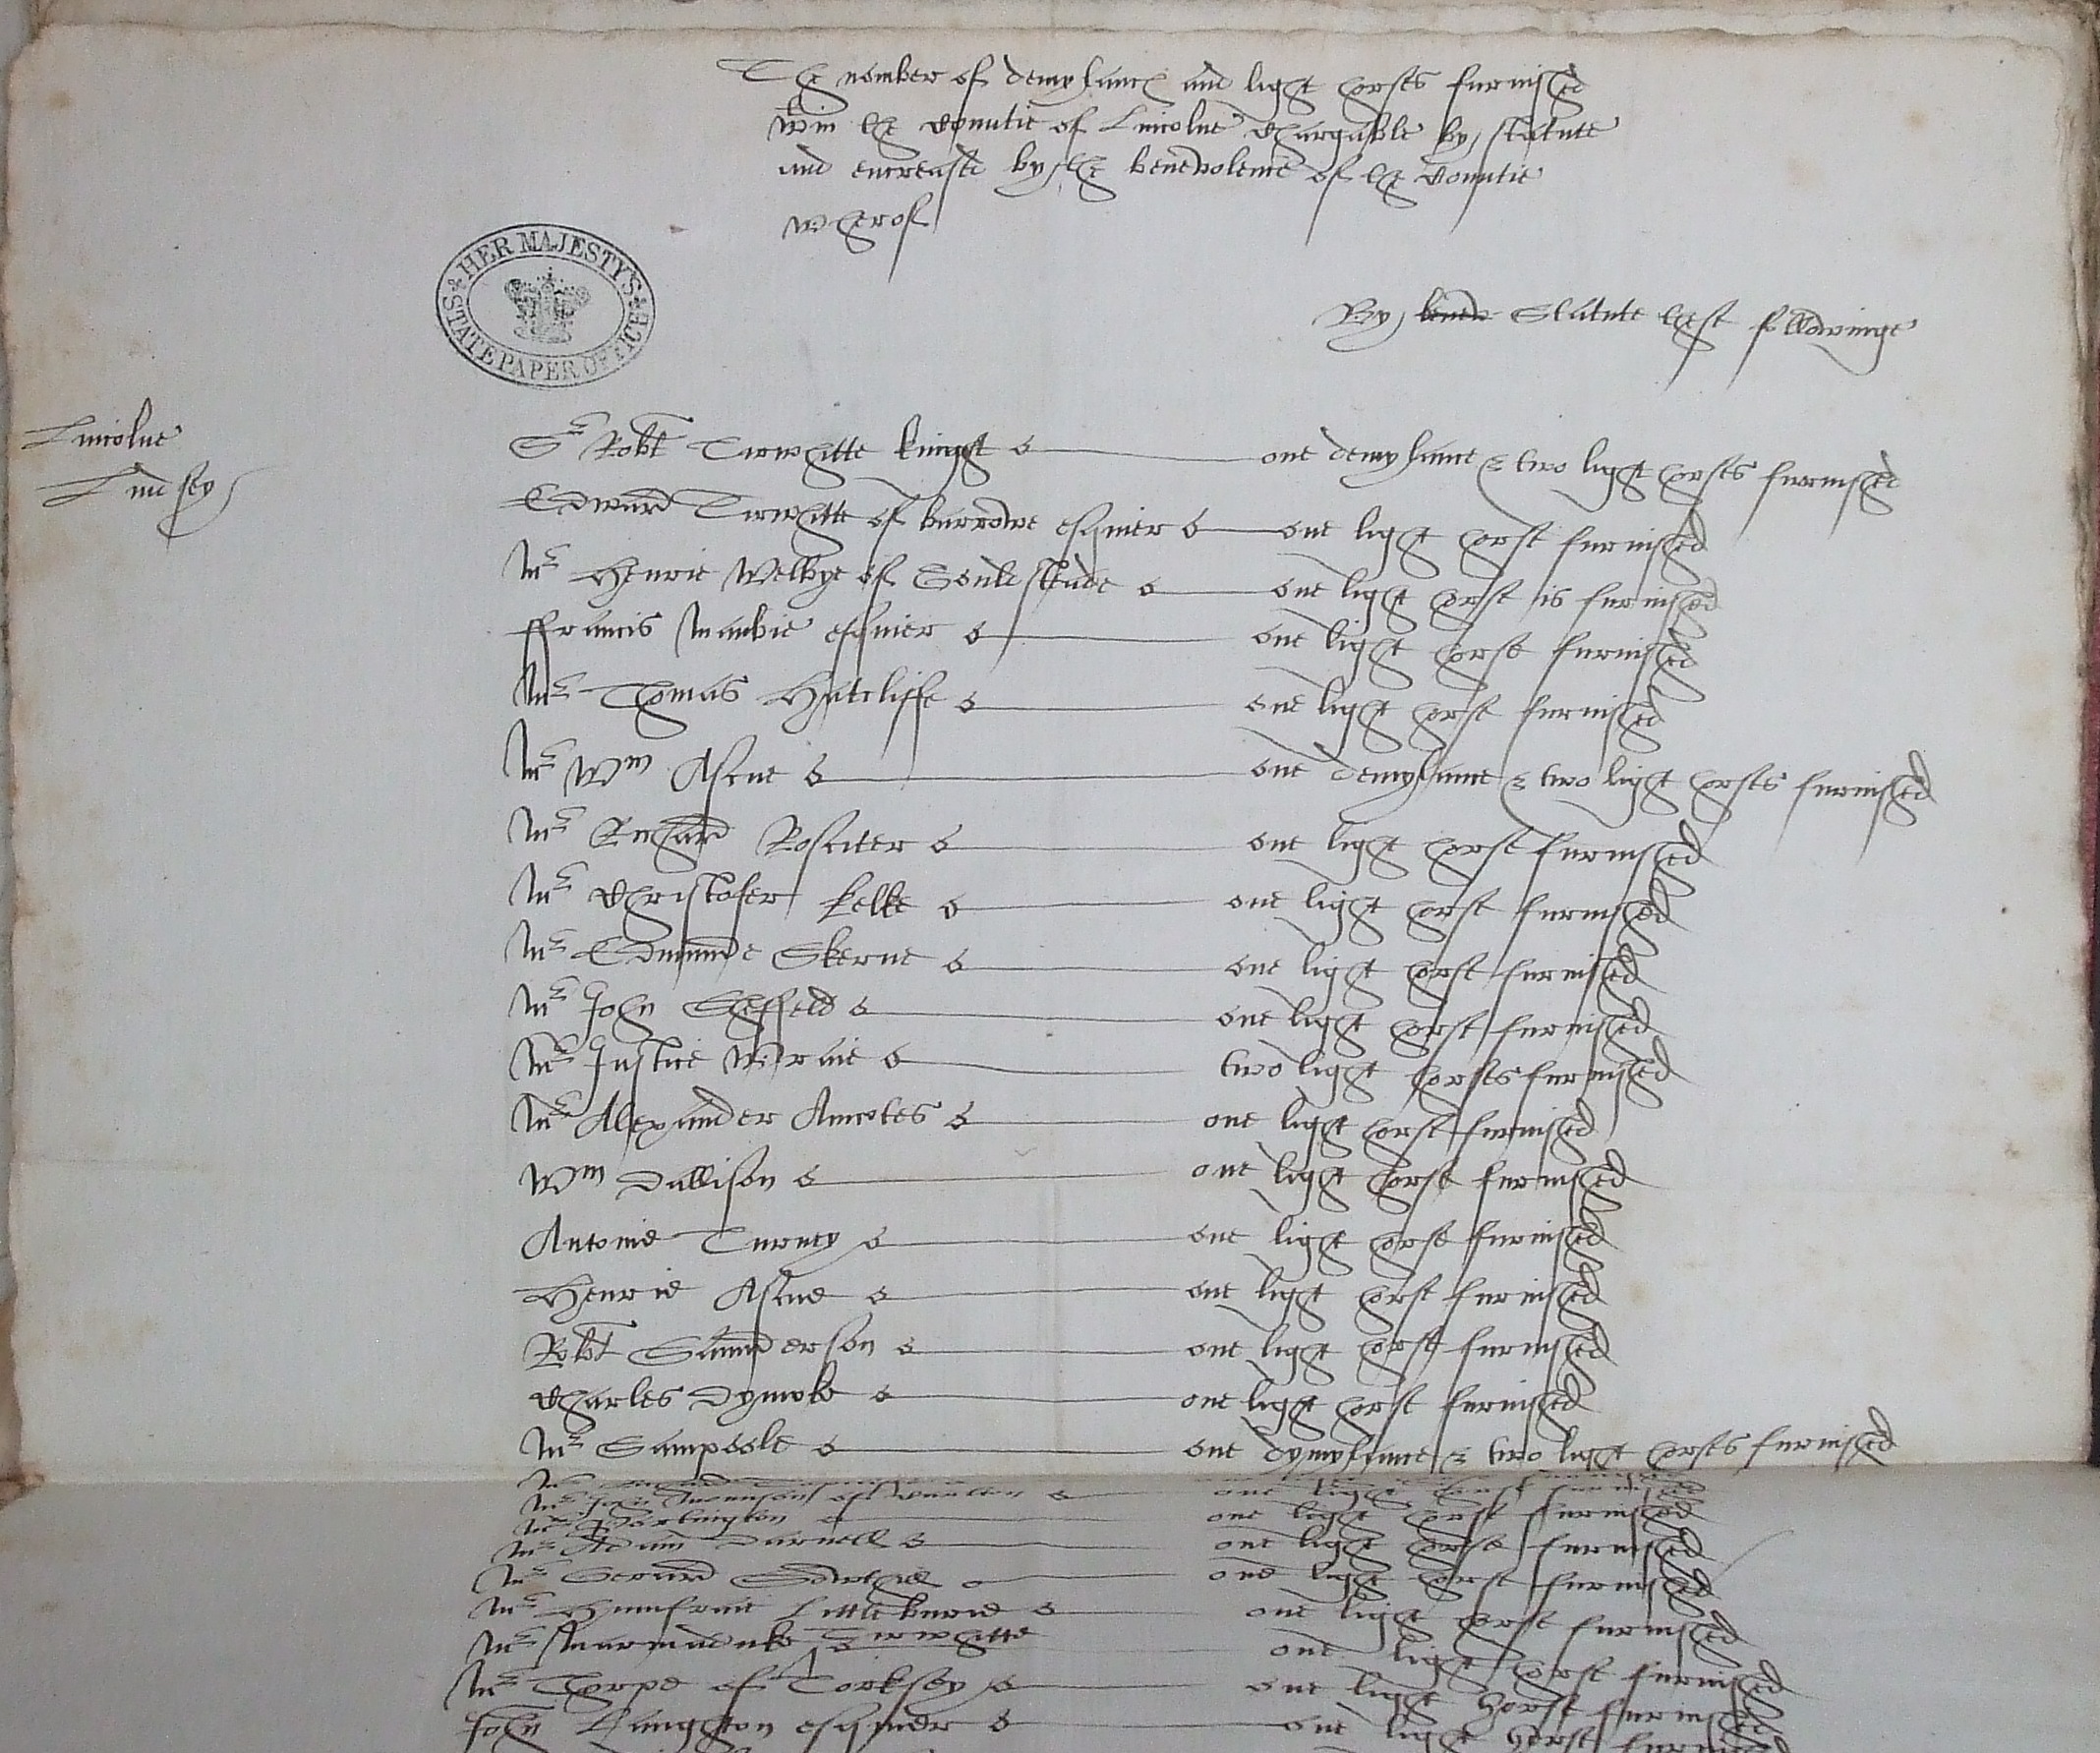 The nomber of demylanc and light horses furnished
wtin the Countie of Lincolne Chargable by statute
and encrease by the benevolence of the Countie
wherof
HER MAJESTY'S
STATE PAPER OFFICE
By benev Statute thes followinge
Lincolne
Lindsey
Sr Robt Tirwhitte knight one demylance & two light horses furnished
Edward Tirwhitte of burrowe esquier one light horse furnished
Mr Henrie Welbye of one light horse is furnished
ffrancis Manbie esquier one light horse furnished
Mr Thomas Hatcliffe one light horse furnished
Mr Wm Ascue one demylance & two light horses furnished
Mr Richard Rosseter one light horse furnished
Mr Christofer kelke one light horse furnished
Mr Edmunde Skerne one light horse furnished
Mr John Sheffeld one light horse furnished
Mr Justice Wraie two light horses furnished
Mr Alexander Amcotes one light horse furnished
Wm Dallison one light horse furnished
Antonie Turney one light horse furnished
Henrie Ascue one light horse furnished
Robt Saunderson one light horse furnished
Charles Dymoke one light horse furnished
Mr Sampoole one dymylance & two light horses furnished
Mr John Mounson of one light horse furnished
Mr one light horse furnished
Mr Adam Darnell one light horse furnished
Mr Gerard Sowthill one light horse furnished
Mr Humfraie Littleburie one light horse furnished
Mr Marmaduke Tirwhitte one light horse furnished
Mr Thorpe of Torksey one light horse furnished
John Langhton esquier one light horse